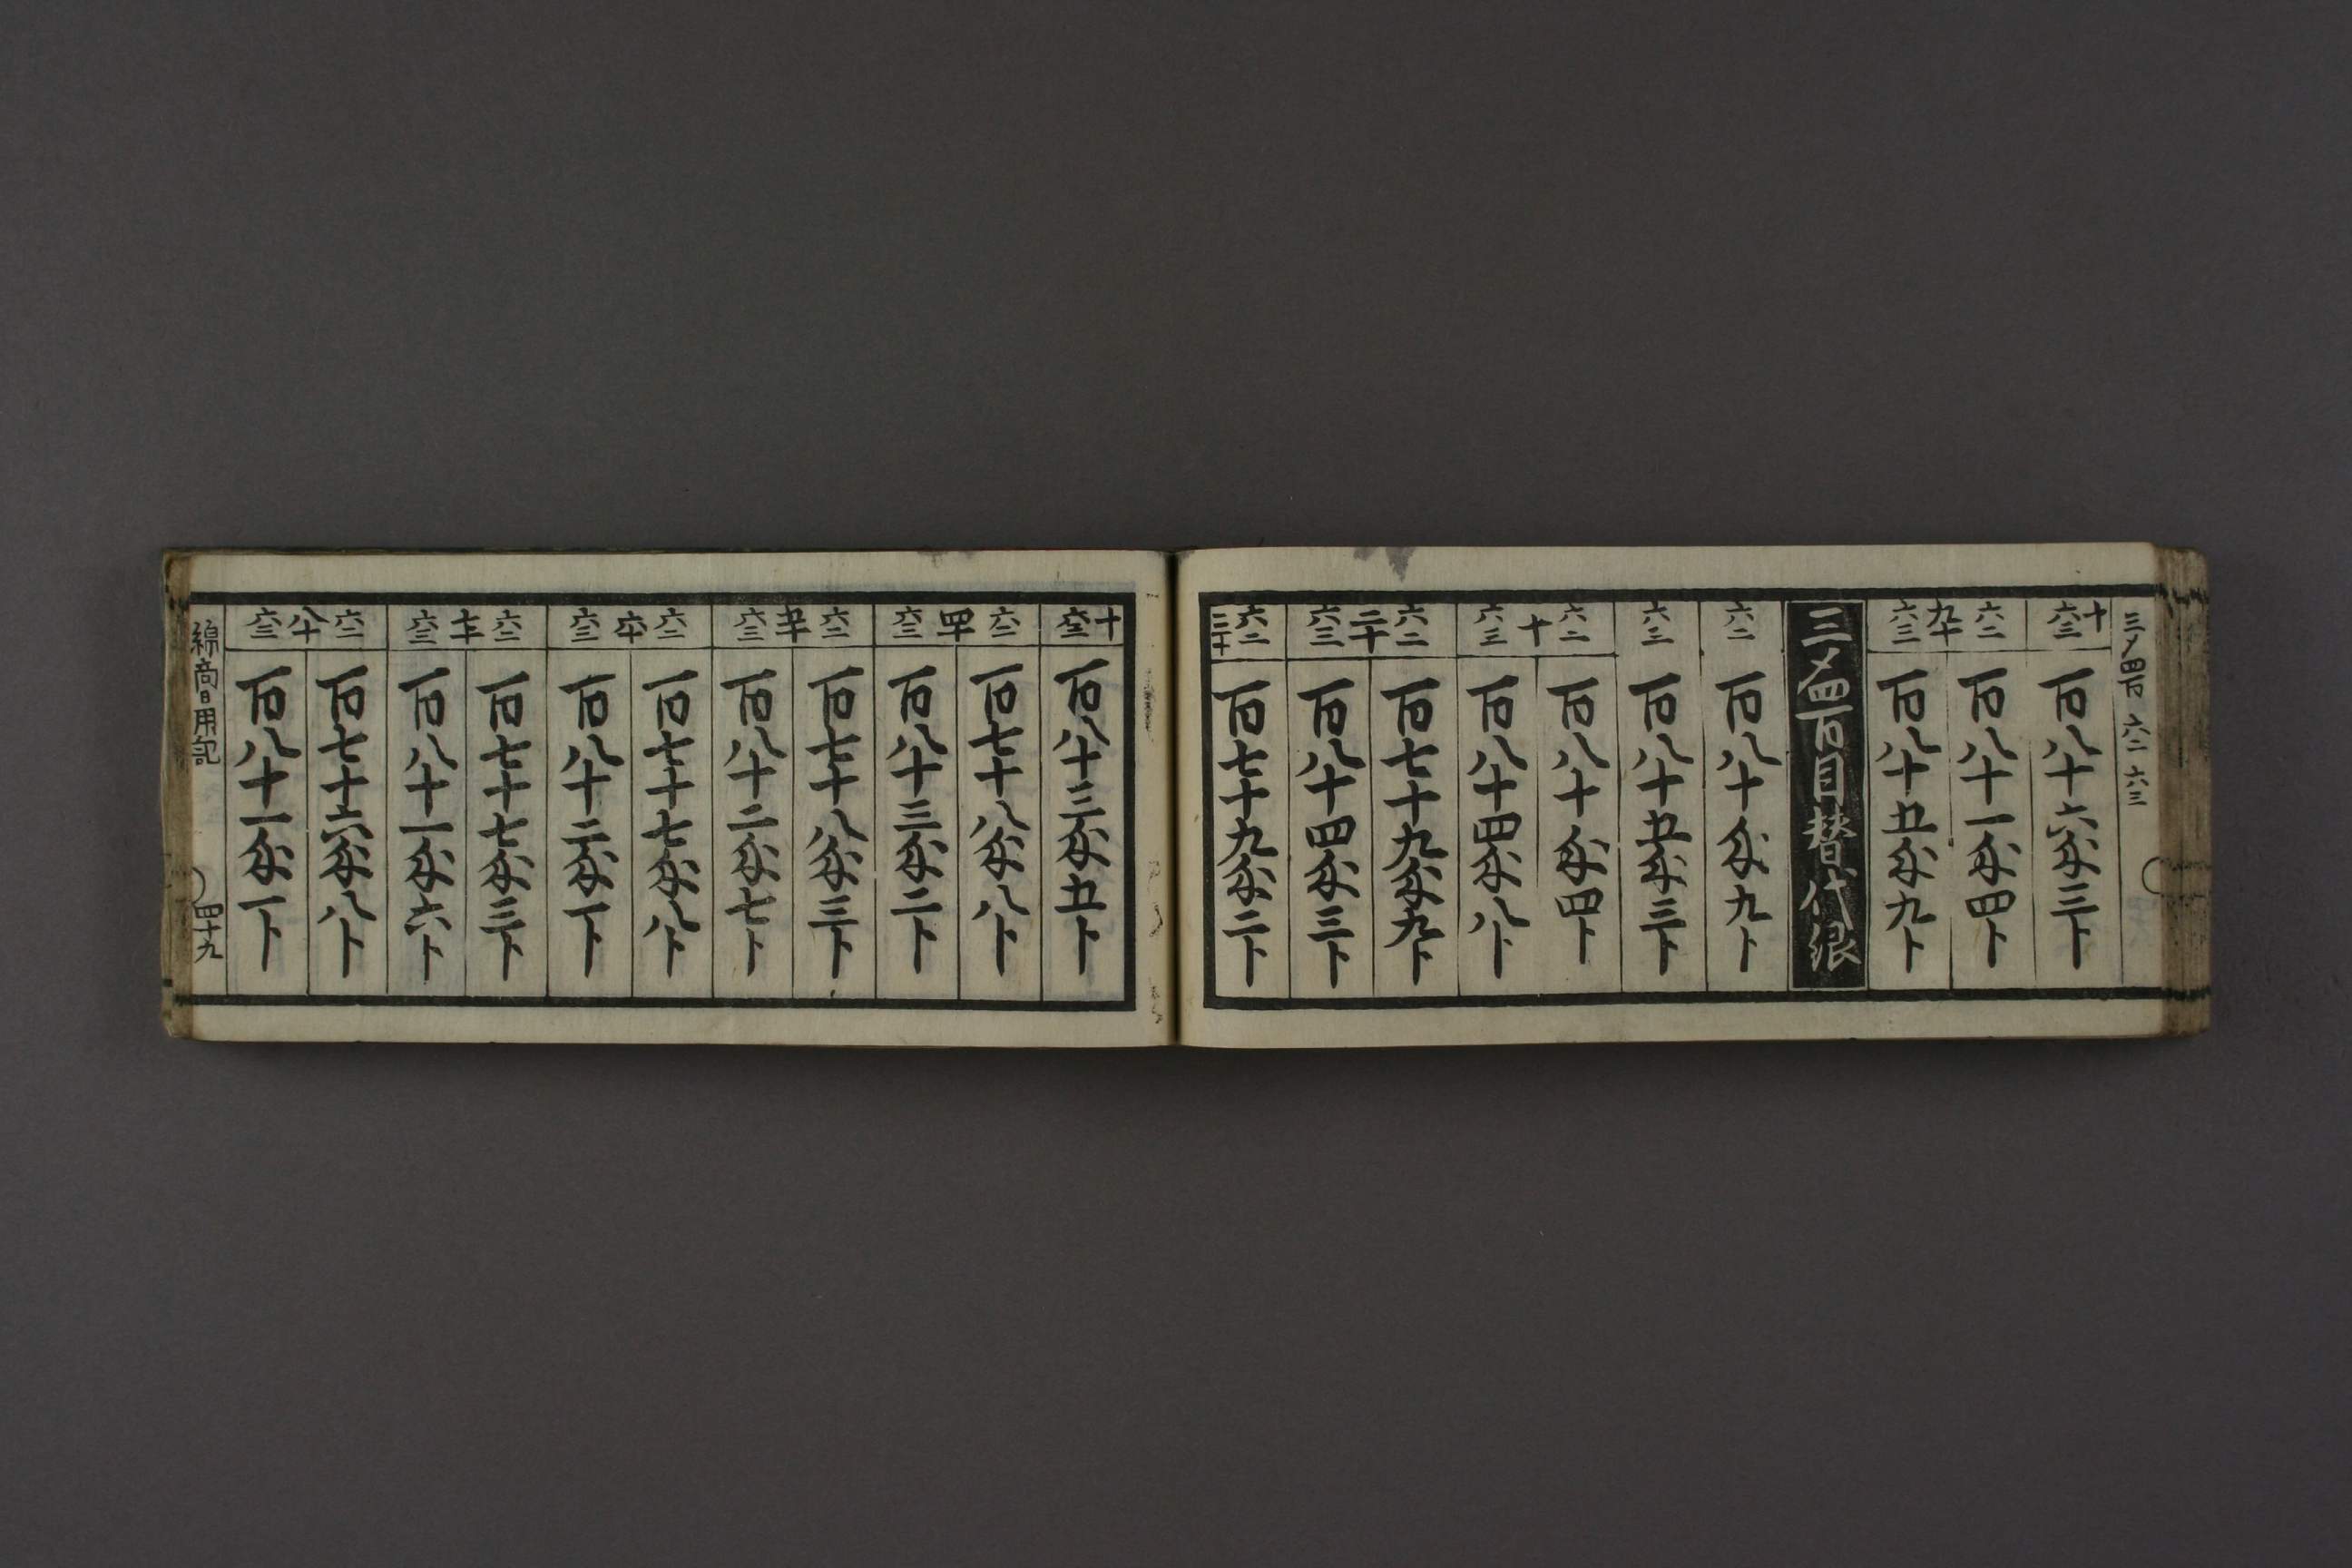 三メ四百 六二 六三
十
六三
百八十六匁三卜
六二
九十
六三
百八十一匁四卜
百八十五匁九卜
三メ四百目替代銀
六二
百八十匁九卜
六三
百八十五匁三卜
六二
十
六三
百八十匁四卜
百八十四匁八卜
六二
二十
六三
百七十九匁九卜
百八十四匁三卜
六二
三十
百七十九匁二卜
十
六三
百八十三匁五卜
六二
四十
六三
百七十八匁八卜
百八十三匁二卜
六二
五十
六三
百七十八匁三卜
百八十二匁七卜
六二
六十
六三
百七十七匁八卜
百八十二匁一卜
六二
七十
六三
百七十七匁三卜
百八十一匁六卜
六二
八十
六三
百七十六匁八卜
百八十一匁一卜
綿商日用記
四十九